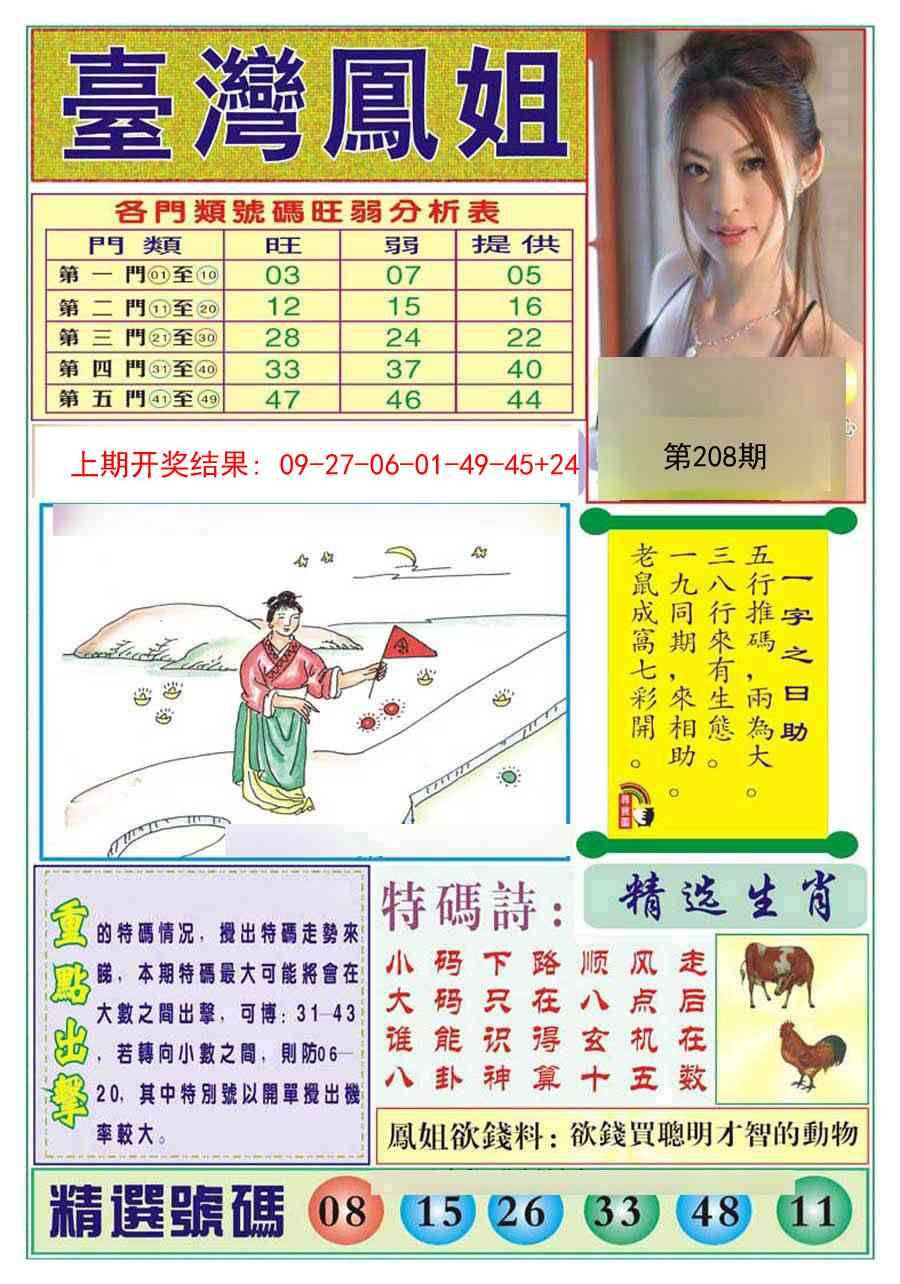 臺灣鳳姐
各門類號碼旺弱分析表
門類 旺 弱 提供
第一門01至10 03 07 05
第二門11至20 12 15 16
第三門21至30 28 24 22
第四門31至40 33 37 40
第五門41至49 47 46 44
上期开奖结果：09-27-06-01-49-45+24
第208期
一字之日助
五行推碼，兩為大。
三八行來有生態。
一九同期，來相助。
老鼠成窩七彩開。
尋寶圖
重點出擊
的特碼情況，攪出特碼走勢來
睇，本期特碼最大可能將會在
大數之間出擊，可博：31—43
，若轉向小數之間，則防06—
20，其中特別號以開單攪出機
率較大。
特碼詩：
小码下路顺风走
大码只在八点后
谁能识得玄机在
八卦神算十五数
精选生肖
鳳姐欲錢料：欲錢買聰明才智的動物
精選號碼 08 15 26 33 48 11